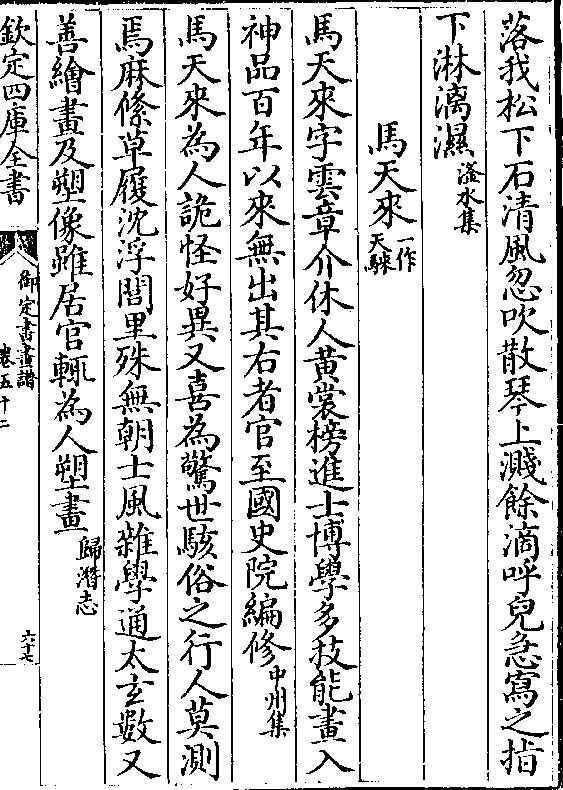 落我松下石清風忽吹散琴上濺餘滴呼兒急寫之指
下淋漓濕滏水集
馬天來一作天騋
馬天來字雲章介休人黃裳榜進士博學多技能畫入
神品百年以來無出其右者官至國史院編修中州集
馬天來為人詭怪好異又喜為驚世駭俗之行人莫測
焉麻絛草履沈浮閭里殊無朝士風雜學通太玄數又
善繪畫及塑像雖居官輒為人塑畫歸潛志
欽定四庫全書
御定書畫譜
卷五十二
六十七